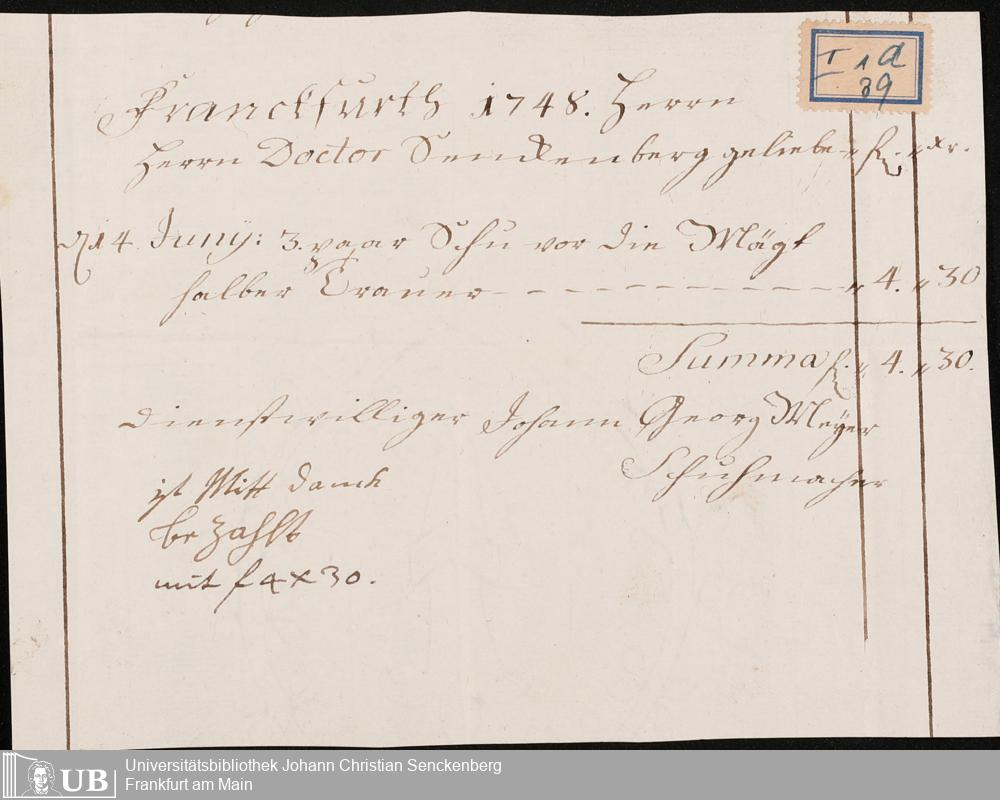 I 1 a
39
Franckfurth 1748. Herrn
Herrn Doctor Senckenberg geliebe " fl. " xr.
d 14 Juny: 3. paar Schu vor die Mägt
halber Trauer - - - - - - - - - - " 4. " 30
Summa fl. " 4. " 30.
dienstwilliger Johann Georg Meÿer
Schuhmacher
ist Mitt danck
be zahlt
mit f 4 x 30.
UB
Universitätsbibliothek Johann Christian Senckenberg
Frankfurt am Main